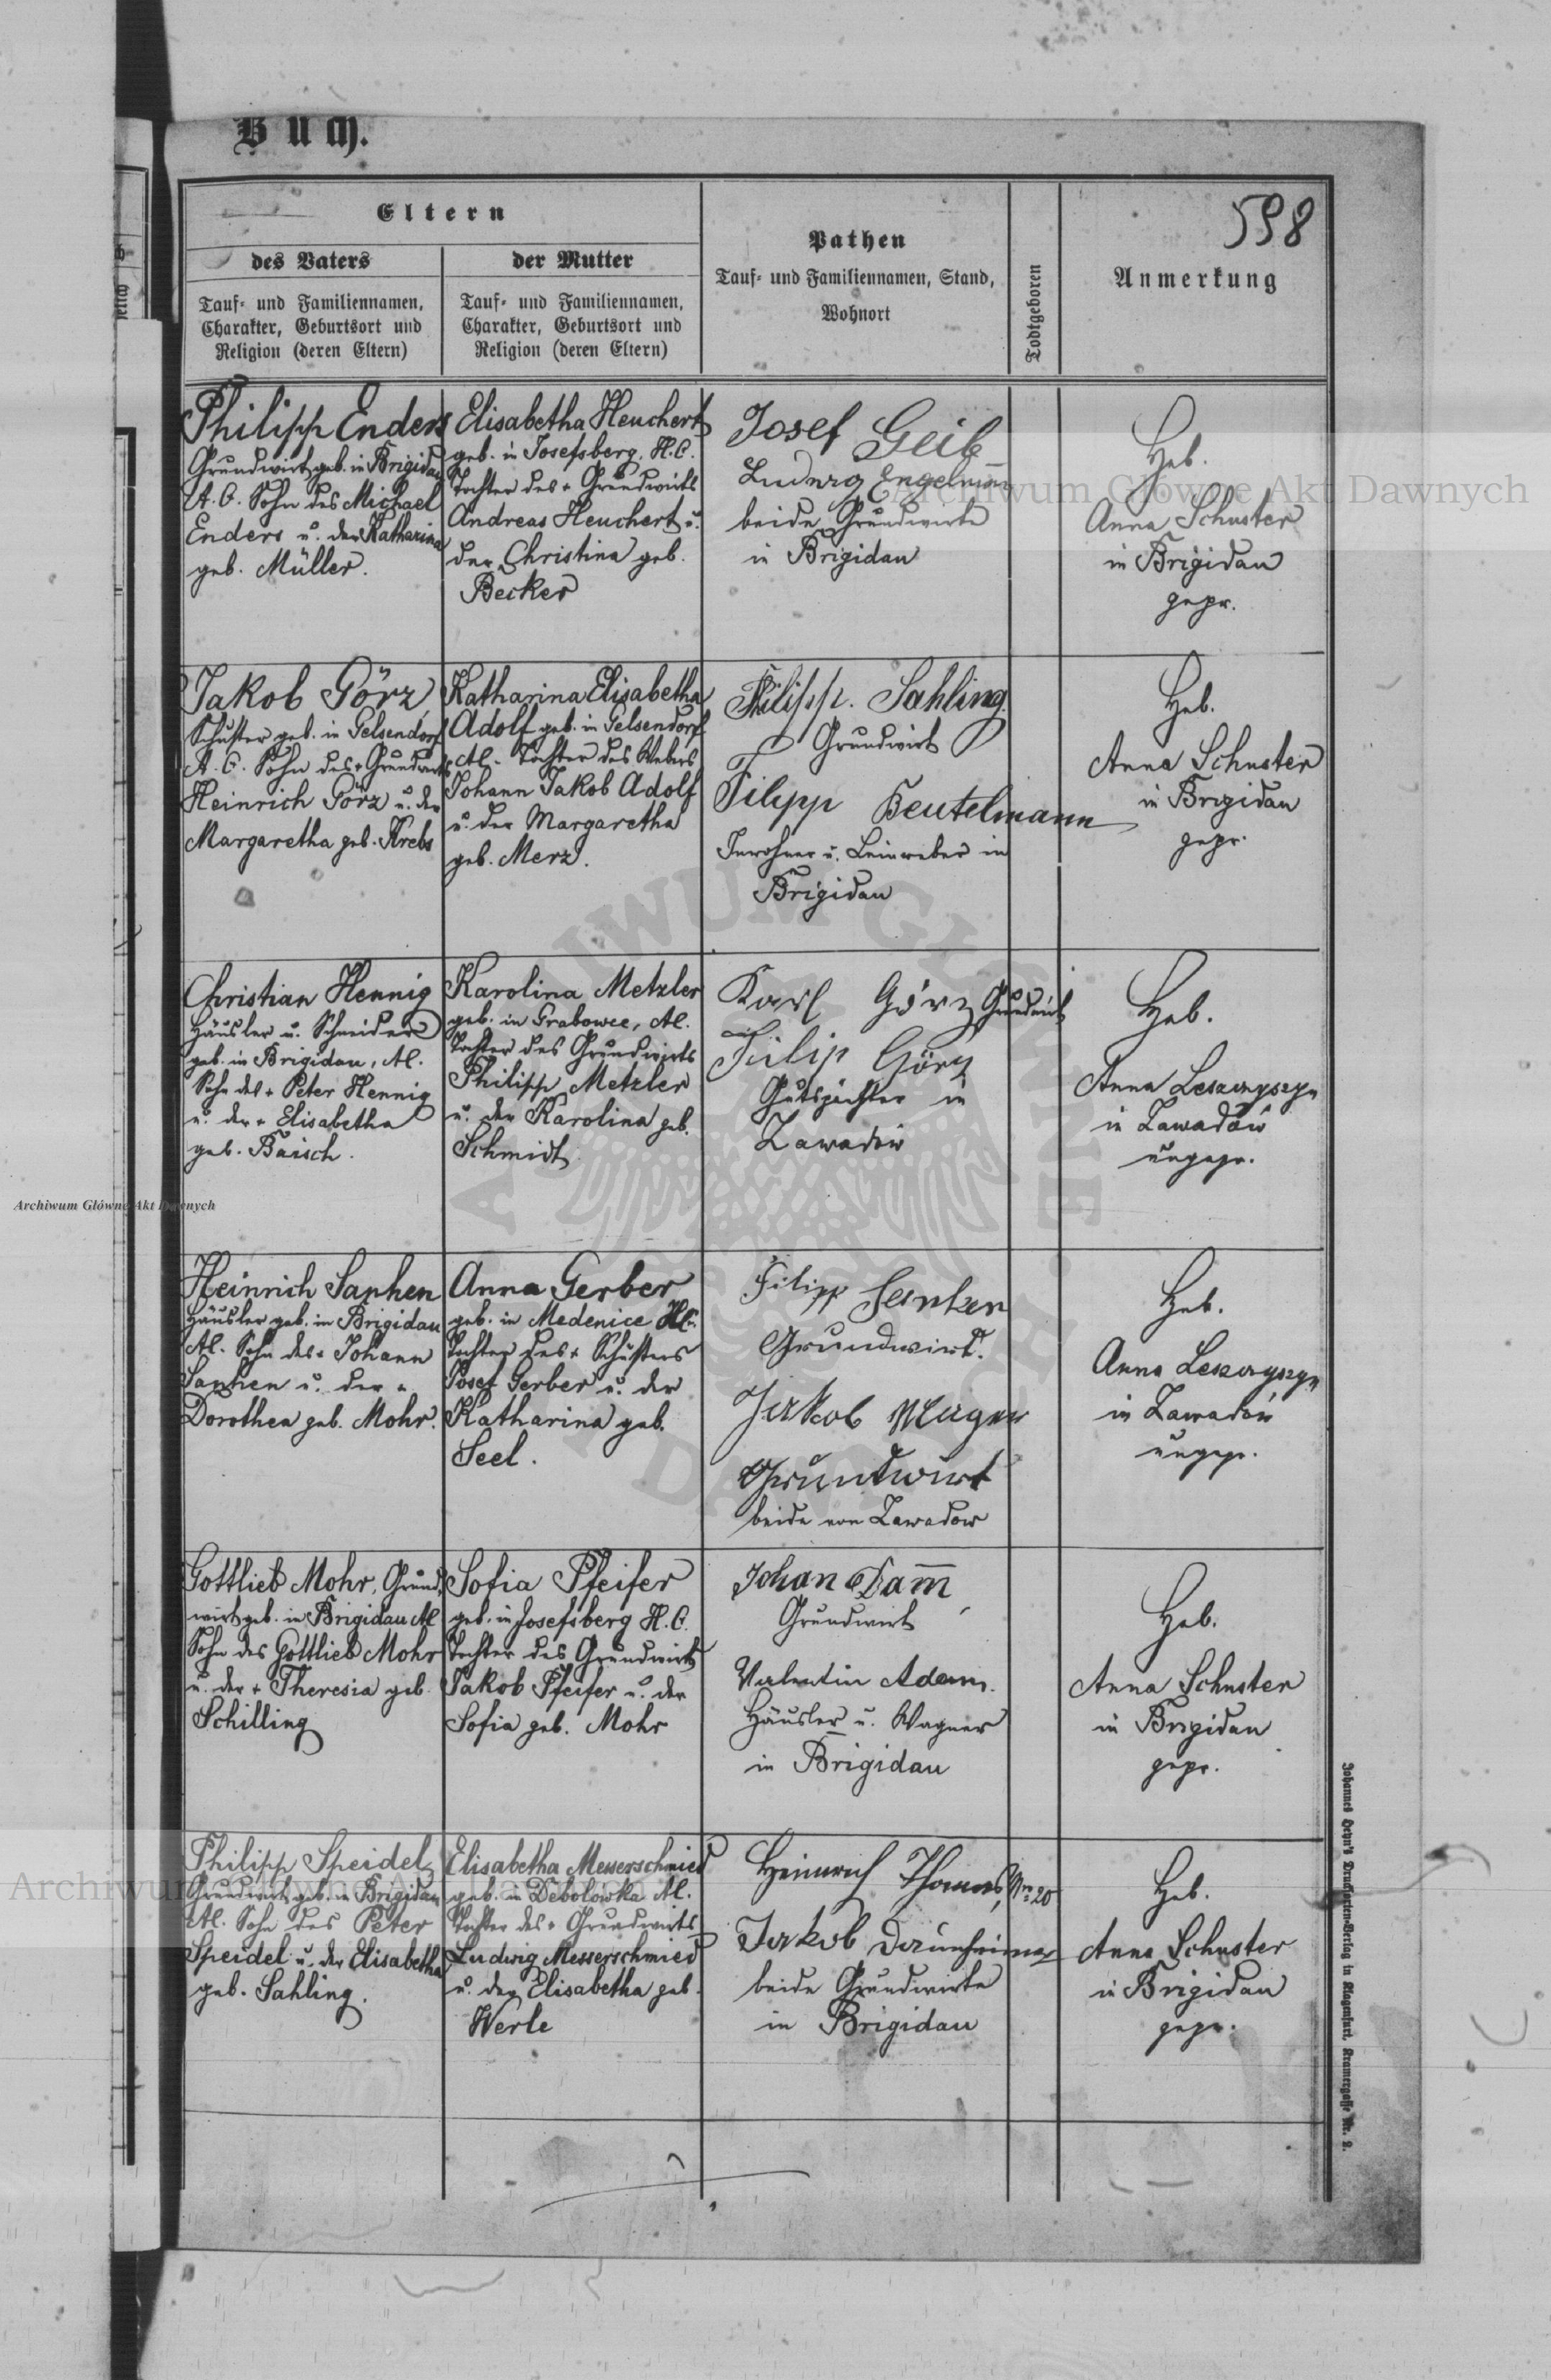 Buch.
598
Eltern
des Vaters
Tauf- und Familiennamen,
Charakter, Geburtsort und
Religion (deren Eltern)
der Mutter
Tauf- und Familiennamen,
Charakter, Geburtsort und
Religion (deren Eltern)
Pathen
Tauf- und Familiennamen, Stand,
Wohnort
Todtgeboren
Anmerkung
Philipp Enders
Grundwirt geb. in Brigidau
A. C. Sohn des Michael
Enders u. der Katharina
geb. Müller.
Elisabetha Heuchert
geb. in Josefsberg, H. C.
Tochter des + Grundwirts
Andreas Heuchert u.
der Christina geb.
Becker
Josef Geib
Ludwig Engelmann
beide Grundwirte
in Brigidau
Heb.
Anna Schuster
in Brigidau
gepr.
Jakob Görz,
Schuster geb. in Gelsendorf
A. C. Sohn des + Grundwirts
Heinrich Görz u. der
Margaretha geb. Krebs
Katharina Elisabetha
Adolf geb. in Gelsendorf
AC. Tochter des Webers
Johann Jakob Adolf
u. der Margaretha
geb. Merz.
Philipp. Sahling.
Grundwirt
Filipp Beutelmann
Inwohner u. Leinweber in
Brigidau
Heb.
Anna Schuster
in Brigidau
gepr.
Christian Hennig
Häusler u. Schneider
geb. in Brigidau, AC.
Sohn des + Peter Hennig
u. der + Elisabetha
geb. Baisch.
Karolina Metzler
geb. in Grabowce, AC.
Tochter des Grundwirts
Philipp Metzler
u. der Karolina geb.
Schmidt
Karl Görz Grundwirt
Filip Görz
Gutspächter in
Zawadów
Heb.
Anna Leszczyszyn
in Zawadów
ungepr.
Heinrich Saphen
Häusler geb. in Brigidau
AC. Sohn des + Johann
Saphen u. der +
Dorothea geb. Mohr.
Anna Gerber
geb. in Medenice HC.
Tochter des + Schusters
Josef Gerber u. der
Katharina geb.
Seel.
Filipp
Grundwirt.
Jakob
Grundwirt
beide von Zawadow
Heb.
Anna Leszczyszyn
in Zawadów
ungepr.
Gottlieb Mohr, Grund-
wirt geb. in Brigidau AC
Sohn des Gottlieb Mohr
u. der + Theresia geb.
Schilling
Sofia Pfeifer
geb. in Josefsberg H. C.
Tochter des Grundwirts
Jakob Pfeifer u. der
Sofia geb. Mohr
Johan Dam̄
Grundwirt
Valentin Adam.
Häusler u. Wagner
in Brigidau
Heb.
Anna Schuster
in Brigidau
gepr.
Philipp Speidel,
Grundwirt geb. in Brigidau
AC. Sohn des Peter
Speidel u. der Elisabetha
geb. Sahling.
Elisabetha Messerschmied
geb. in Debolowka AC.
Tochter des + Grundwirts
Ludwig Messerschmied
u. der Elisabetha geb.
Werle
Heinrich Thomas, Nr. 20
Jakob Daumheimer
beide Grundwirte
in Brigidau
Heb.
Anna Schuster
in Brigidau
gepr.
Johannes Heyn's Drucksorten-Verlag in Klagenfurt, Kramergasse Nr. 2.
Archiwum Główne Akt Dawnych
Archiwum Główne Akt Dawnych